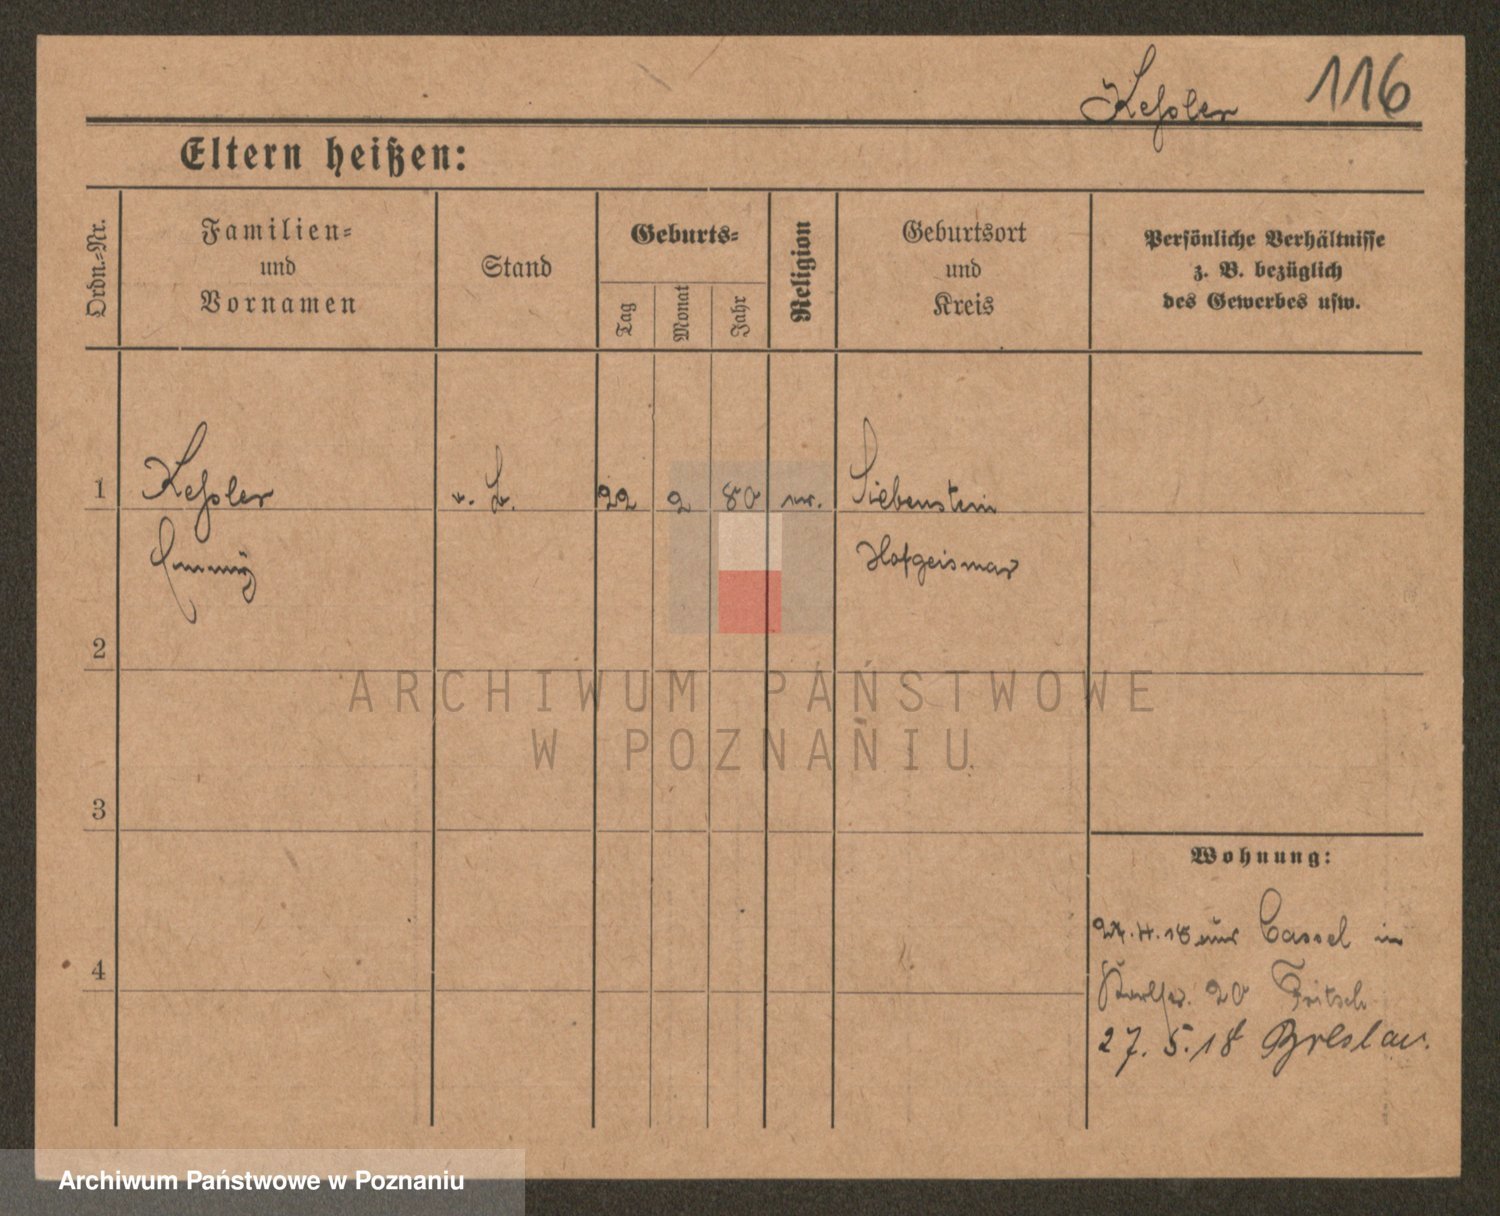 Keßler 116
Eltern heißen:
Ordn.-Nr.
Familien-
und
Vornamen
Stand
Geburts-
Tag
Monat
Jahr
Religion
Geburtsort
und
Kreis
Persönliche Verhältnisse
z. B. bezüglich
des Gewerbes usw.
1 Keßler 22 2 80 Liebenstein
Emmy Hofgeismar
2
3
4
Wohnung:
18 aus Cassel in
20 Fritsch
27. 5. 18 Breslau.
ARCHIWUM PAŃSTWOWE
W POZNANIU
Archiwum Państwowe w Poznaniu